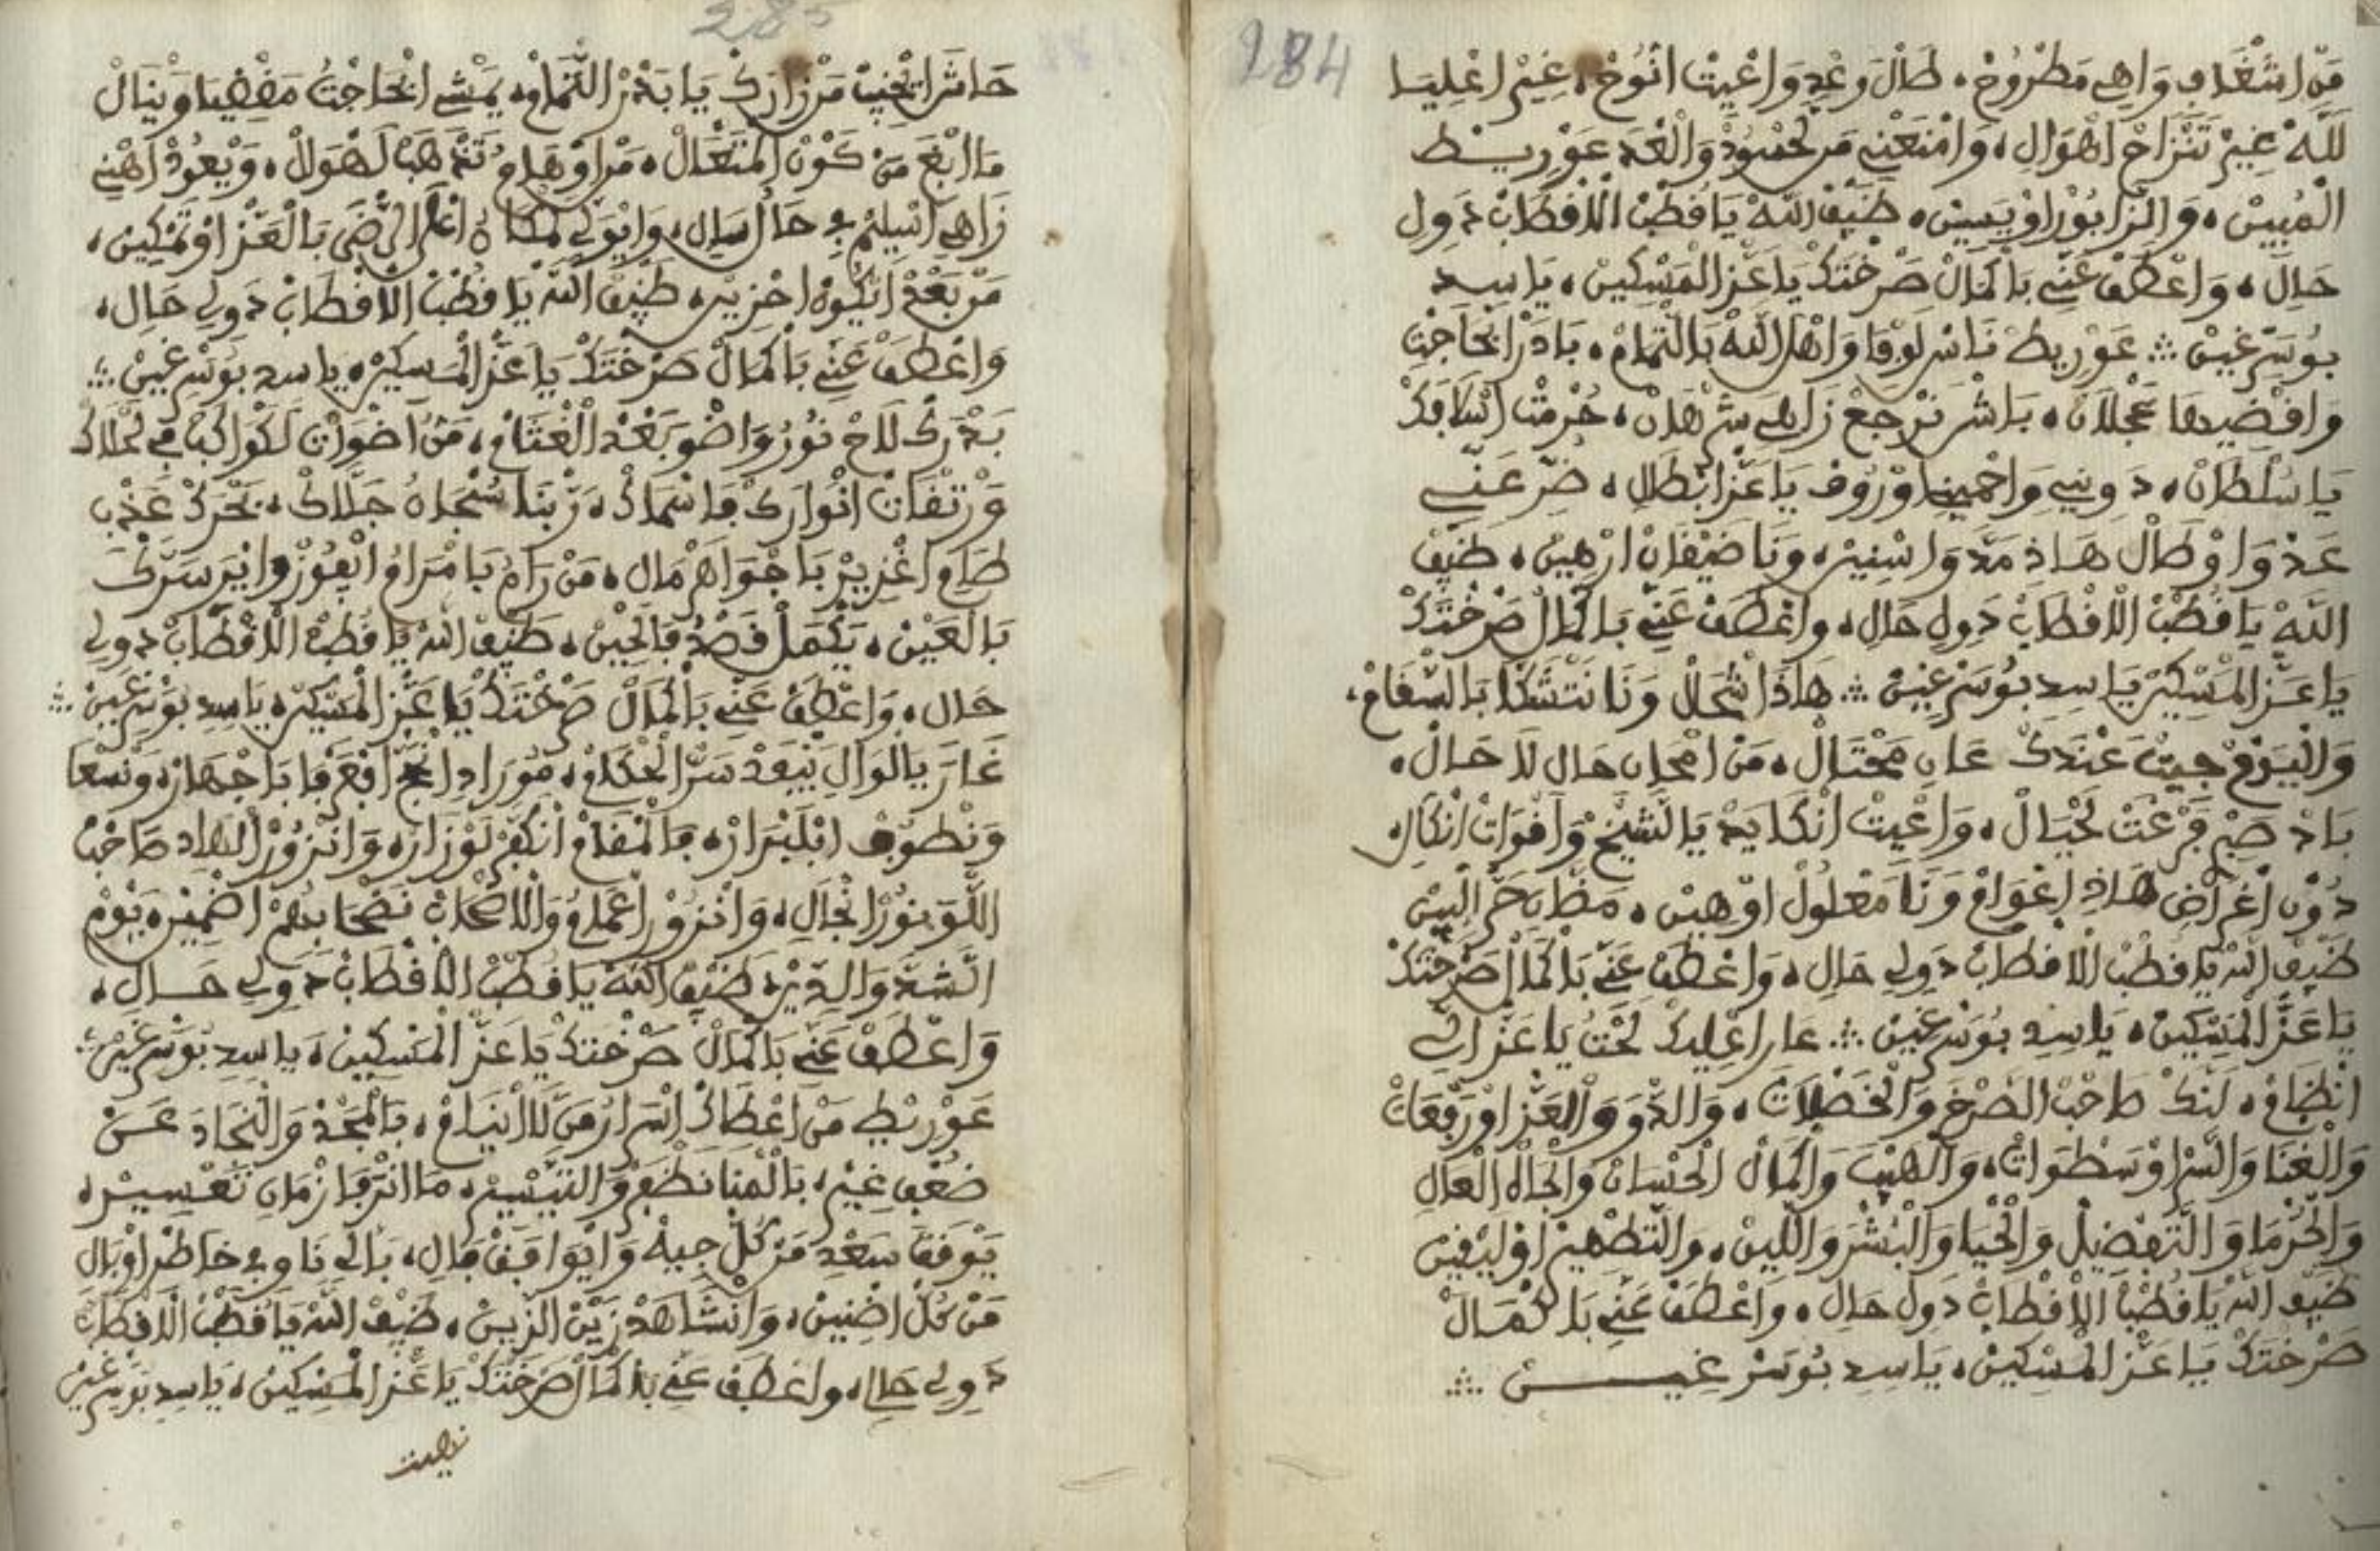 284
مَن اشْغَابِ وَاهِي مَطْرُوحْ، طَالْ وَعْدِ وَاعْيِيتْ انُّوحْ، غِيرْ اعْلِيَا
للَّهْ غِيرْ تَنْزَاحْ اهْوَالِ، وَامْنَعْنِي مَن لَحْسُودْ وَالْغَدْ عَوْرِيط
الْمُبِينْ، طَيْف اللَّهْ يَا قُطْبْ الَاقْطَابْ دَولِ
حَالِ، وَاعْطَفْ عَنِّي بَاكْمَالْ صَرْخْتَكْ يَا عَزْ الْمَسْكِينْ، يَا سِيد
بُوسَرْغِينْ ∴ عَوْرِيط نَاسْ لَوْفَا وَاهْلْ اللَّهْ بَالتْمَامْ، بَادَرْ الْحَاجْتِ
وَاقْضِيهَا عَجْلَانْ، بَاشْ نَرْجَعْ زَاهِي شَرْهَانْ، حُرْمْتْ اسْلَافَكْ
يَا سُلْطَانْ، دَوِينِي وَاحْمِينِي اوْرُوف يَا عَزْ ابْطَالِ، ضَرْ عَنِّي
عَدْوَا وْطَالْ هَاذِ مَدْ وَاسْنِينْ، وَنَا ضَيْفَانْ ارْهِينْ، طَيْف
اللَّهْ يَا قُطْبْ الَاقْطَابْ دَولِ حَالِ، وَاعْطَفْ عَنِّي بَاكْمَالْ صَرْخْتَكْ
يَا عَزْ الْمَسْكِينْ يَا سِيد بُوسَرْغِينْ ∴ هَاذَا شْحَالْ وَنَا نَتْشَكَّا بَالسْقَامْ،
وَالْيَومْ جِيتْ عَنْدَكْ عَانِي مَحْتَالْ، مَن امْحَانِ حَالِ لَا حَالْ،
بَادْ صَبْرِ فَرْغَتْ لَحْيَالْ، وَاعْيِيتْ انْكَايَدْ يَا الشِّيخْ وَاقْوَاتْ انْكَالِ
دُونْ اغْرَاضِ هَاذِ اعْوَامْ وَنَا مَعْلُولْ اوْهِينْ، حَرْ الْبِينْ
طَيْف اللَّهْ يَا قُطْبْ الَاقْطَابْ دَولِي حَالِ، وَاعْطَفْ عَنِّي بَاكْمَالْ صَرْخْتَكْ
يَا عَزْ الْمَسْكِينْ، يَا سِيدِ بُوسَرْغِينْ ∴ عَارِ اعْلِيكْ لَحْتُ يَا عَزْ الِّي
انْظَامْ، لَنَّكْ صَاحْبْ الصَّرْخَ وَالْخَصْلَاتْ، وَالدْوَ وَالْعَزْ اوْرَفْعَاتْ
وَالْغْنَا وَالسَّرْ اوْسَطْوَاتْ، وَالْهِيبَ وَالْكْمَالْ الْحْسَانْ وَالْجَاهْ الْعَالِ
وَالْحُرْمَا وَالتَّفْضِيلْ وَالْحْيَا وَالْبُشْرَ وَاللِّينْ، وَالتَّطْهِيرْ اوْلِيقِينْ
طَيْف اللَّهْ يَا قُطْبْ الَاقْطَابْ دَولِ حَالِ، وَاعْطَفْ عَنِّي بَاكْمَالْ
صَرْخْتَكْ يَا عَزْ الْمَسْكِينْ، يَا سِيدِ بُوسَرْغِينْ ∴
285
حَاشَا نْخِيبْ مَن ازْيَارَكْ يَا بَدْرْ التْمَامْ، يَمْشِي الْحَاجْتُ مَقْضِيَا وَيْنَالْ
مَا ابْغَى مَن كَوْنْ الْمَتْعَالْ، مَن اوْهَامُ تَذْهَبْ لَهْوَالْ، وَيْعُودْ اهْنِي
زَاهِي اسْلِيمْ فِي حَالْ وَايْوَلِّي لَمْكَانُ الرِّضَى بَالْعَزْ اوْتَمْكِينْ،
مَن بَعْدْ ايْكُونْ احْزِينْ، طَيْف اللَّهْ يَا قُطْبْ الَاقْطَابْ دَولِي حَالِ،
وَاعْطَفْ عَنِّي بَاكْمَالْ صَرْخْتَكْ يَا عَزْ الْمَسْكِينْ، يَا سِيد بُوسَرْغِينْ ∴
بَدْرَكْ لَاحْ نُورُ وَاضْوَ بَعْدْ الْغْتَامْ، مَن اضْوَاتْ لَكْوَاكَبْ فِي لَحْلَاكْ
وَرْتَفْعَاتْ انْوَارَكْ فَاسْمَاكْ، رَبْنَا سُبْحَانُ جَلَّاكْ، بَحْرَكْ عَذْبِ
طَامِ اغْزِيرْ بَاجْوَاهَرْ مَالِ، مَن رَامُ بَامْرَامُ ايْفُوزْ وَايْرَ سَرَّكْ
بَالْعَيْنْ، يَكْمَلْ قَصْدُ فَالْحِينْ، طَيْف اللَّهْ يَا قُطْبْ الَاقْطَابْ دَولِي
حَالِ، وَاعْطَفْ عَنِّي بَاكْمَالْ صَرْخْتَكْ يَا عَزْ الْمَسْكِينْ، يَا سِيدِ بُوسَرْغِينْ ∴
غَارَ يَا لْوَالِ يَنْفَدْ سَرْ الْحْكَامْ، مُورَادِ بَاجْهَارْ، وَنَسْعَا
وَنْطُوفْ فَالْمْقَامْ انْكَفَّرْ لَوْزَارْ، وَانْزُورْ الْهَادِ صَاحْبْ
اللْوَ نُورْ انْجَالِ، وَانْزُورْ اعْمَامُ وَالَاصْحَابْ بِهُمْ اضْمِينْ، يَوْمْ
الشَّدَّ وَالدِّينْ، طَيْف اللَّهْ يَا قُطْبْ الَاقْطَابْ دَولِي حَالِ،
وَاعْطَفْ عَنِّي بَاكْمَالْ صَرْخْتَكْ يَا عَزْ الْمَسْكِينْ، يَا سِيدِ بُوسَرْغِينْ ∴
عَوْرِيطِ مَن اعْطَاكْ اسْرَارُ مَن لَا ايْنَامْ، بَالْمَجْدْ وَالنْجَادَ عَن
ضُعْفِ غِيرْ، بَالْمْنَا نَظْفَرْ وَالتَّيْسِيرْ، مَا انَرْفَا زْمَانِ تَعْسِيرْ،
يَوْفَقْ سَعْدِ مَن كُلْ جِيهْ وَايْوَافَقْ فَالِ، بَالِّي نَاوِي خَاطْرِ اوْبَالِ
مَن كُلْ اضْنِينْ، وَانْشَاهَدْ زَيْنْ الزِّينْ، طَيْف اللَّهْ يَا قُطْبْ الَاقْطَابْ
دَولِي حَالِ، وَاعْطَفْ عَنِّي بَاكْمَالْ صَرْخْتَكْ يَا عَزْ الْمَسْكِينْ، يَا سِيدِ بُوسَرْغِينْ